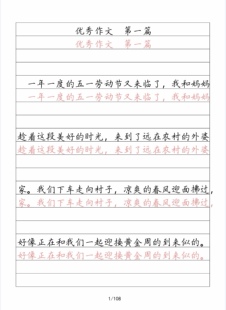 优秀作文 第一篇
优秀作文 第一篇
一年一度的五一劳动节又来临了，我和妈妈
一年一度的五一劳动节又来临了，我和妈妈
趁着这段美好的时光，来到了远在农村的外婆
趁着这段美好的时光，来到了远在农村的外婆
家。我们下车走向村子，凉爽的春风迎面拂过，
家。我们下车走向村子，凉爽的春风迎面拂过，
好像正在和我们一起迎接黄金周的到来似的。
好像正在和我们一起迎接黄金周的到来似的。
1/108